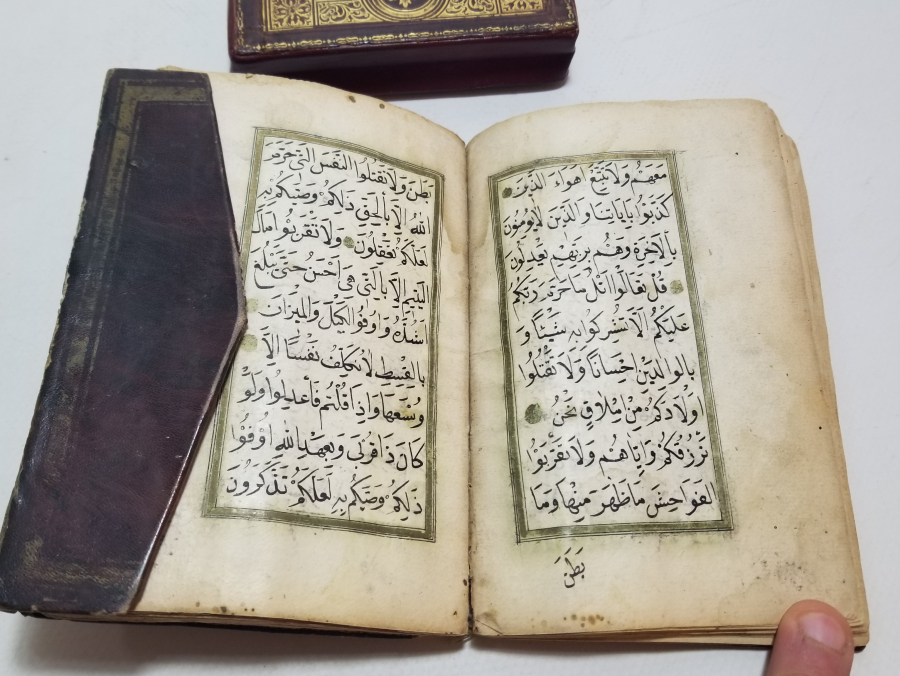 معهم ولا تتبع اهواء الذين
كذبوا باياتنا والذين لا يومنون
بالاخرة وهم بربهم يعدلون
قل تعالوا اتل ما حرم ربكم
عليكم الا تشركوا به شيئا و
بالوالدين احسانا ولا تقتلوا
اولادكم من املاق نحن
نرزقكم واياهم ولا تقربوا
الفواحش ما ظهر منها وما
بطن
بطن ولا تقتلوا النفس التي حرم
الله الا بالحق ذلكم وصيكم به
لعلكم تعقلون ولا تقربوا مال
اليتيم الا بالتي هي احسن حتى يبلغ
اشده واوفوا الكيل والميزان
بالقسط لا نكلف نفسا الا
وسعها واذا قلتم فاعدلوا ولو
كان ذا قربى وبعهد الله اوفوا
ذلكم وصيكم به لعلكم تذكرون